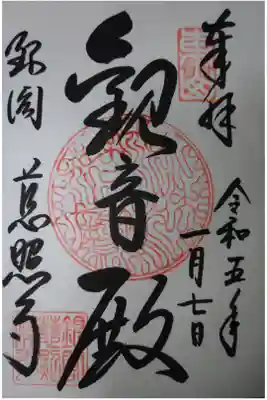 奉拝
令和五年
一月七日
観音殿
銀閣
慈照寺